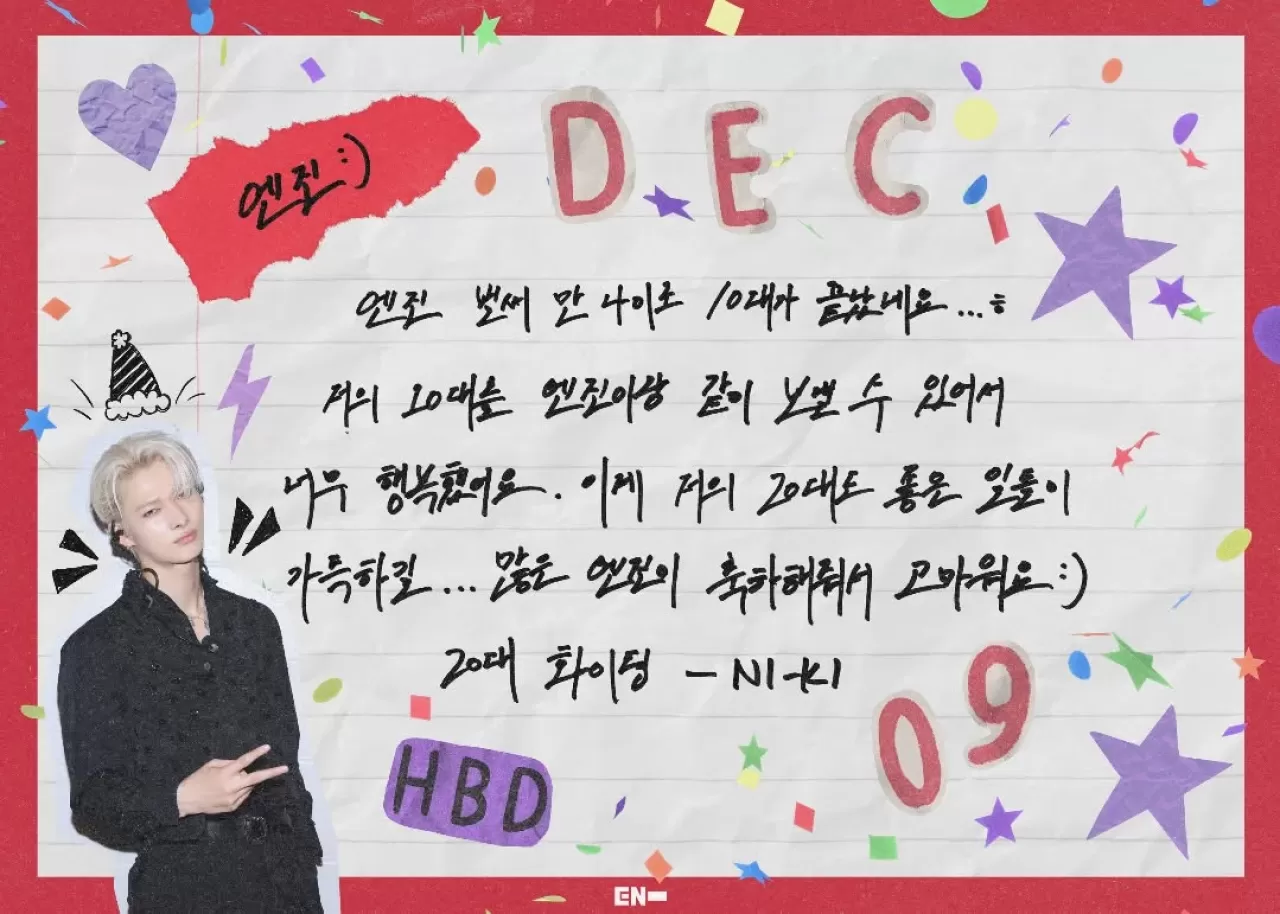 엔진:)
DEC
엔진 벌써 만 나이로 10대가 끝났네요...ㅎ
저의 10대를 엔진이랑 같이 보낼 수 있어서
너무 행복했어요. 이제 저의 20대도 좋은 일들이
가득하길... 많은 엔진의 축하해줘서 고마워요:)
20대 화이팅 - NI-KI
09
HBD
EN-